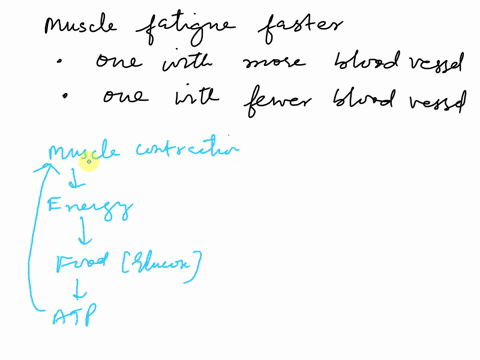 Muscle fatigne faster
• one with more blood vessel
• one with fewer blood vessel
Muscle contraction
Energy
Food [Glucose]
ATP